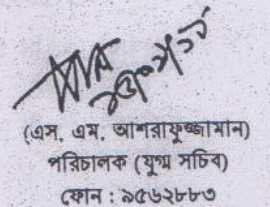 (এস, এম, আশরাফুজ্জামান)
পরিচালক (যুগ্ম সচিব)
ফোন : ৯৫৬২৮৮৩